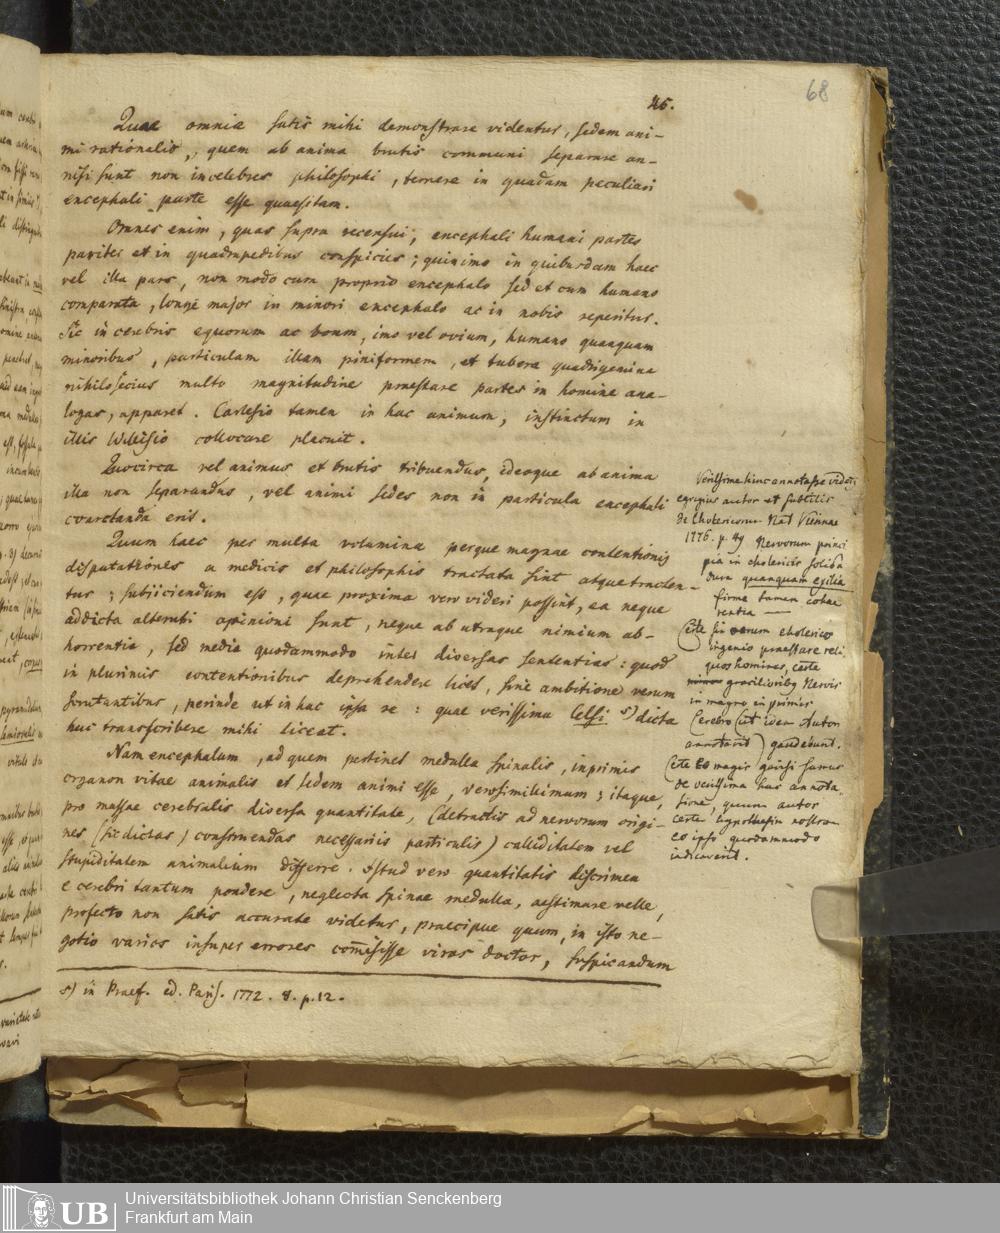 68
46.
Quae omnia satis mihi demonstrare videntur, sedem ani-
mi rationalis, quem ab anima brutis communi separare an-
nisi sunt non incelebres philosophi, temere in quadam peculiari
encephali parte esse quaesitam.
Omnes enim, quas supra recensui, encephali humani partes
pariter et in quadrupedibus conspicies; quinimo in quibusdam haec
vel illa pars, non modo cum proprio encephalo sed et cum humano
comparata, longe major in minori encephalo ac in nobis reperitur.
Sic in cerebris equorum ac boum, imo vel ovium, humano quanquam
minoribus, particulam illam piniformem, et tubera quadrigemina
nihilosecius multo magnitudine praestare partes in homine ana-
logas, apparet. Cartesio tamen in hac animum, instinctum in
illis Willisio collocare placuit.
Quocirca vel animus et brutis tribuendus, ideoque ab anima
illa non separandus, vel animi sedes non in particula encephali
coarctanda erit.
Quum haec per multa volumina perque magnae contentionis
disputationes a medicis et philosophis tractata sint atque tracten-
tur; subiiciendum est, quae proxima vero videri possint, ea neque
addicta alterutri opinioni sunt, neque ab utraque nimium ab-
horrentia, sed media quodammodo inter diversas sententias: quod
in plurimis contentionibus deprehendere licet, sine ambitione verum
scrutantibus, perinde ut in hac ipsa re: quae verissima Celsi s) dicta
huc transcribere mihi liceat.
Nam encephalum, ad quem pertinet medulla spinalis, inprimis
organon vitae animalis et sedem animi esse, verosimillimum; itaque,
pro massae cerebralis diversa quantitate, (detractis ad nervorum origi-
nes (sic dictas) construendas necessariis particulis) calliditatem vel
stupiditatem animalium differre. Istud vero quantitatis discrimen
e cerebri tantum pondere, neglecta spinae medulla, aestimare velle,
profecto non satis accurate videtur, praecipue quum, in isto ne-
gotio varios insuper errores commisisse viros doctos, suspicandum
s) in Praef. ed. Paris. 1772. 8. p. 12.
Verissime hinc annotasse videtur
egregius autor et subtilis
de Cholericorum Nat Viennae
1776. p. 49 Nervorum princi
pia in cholericis solida
dura quanquam exilia
firma tamen cohae
rentia —
Certe si verum cholericos
ingenio praestare reli
quos homines, certe
gracilioribus Nervis
in magno in primis
Cerebro (ut idem Autor
annotavit) gaudebunt.
Certe magis quasi sumus
de verissima hac annota-
tione, quum autor
certe hypothesin nostram
eo ipso quodammodo
indicaverit.
UB
Universitätsbibliothek Johann Christian Senckenberg
Frankfurt am Main